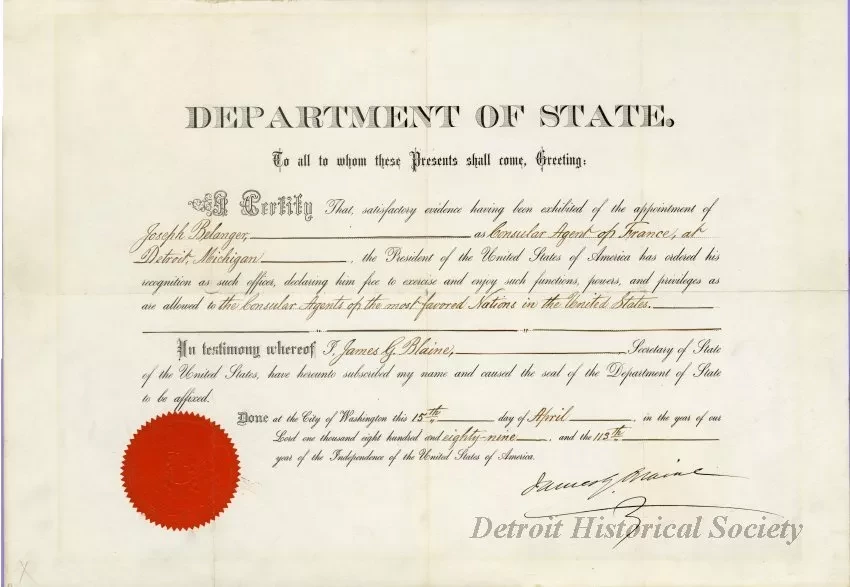 DEPARTMENT OF STATE.
To all to whom these Presents shall come, Greeting:
I Certify That, satisfactory evidence having been exhibited of the appointment of
Joseph Belanger, as Consular Agent of France, at
Detroit, Michigan, the President of the United States of America has ordered his
recognition as such officer, declaring him free to exercise and enjoy such functions, powers, and privileges as
are allowed to the Consular Agents of the most favored Nations in the United States.
In testimony whereof I, James G. Blaine, Secretary of State
of the United States, have hereunto subscribed my name and caused the seal of the Department of State
to be affixed.
Done at the City of Washington this 15th day of April, in the year of our
Lord one thousand eight hundred and eighty-nine, and the 113th
year of the Independence of the United States of America.
James G Blaine
Detroit Historical Society
X